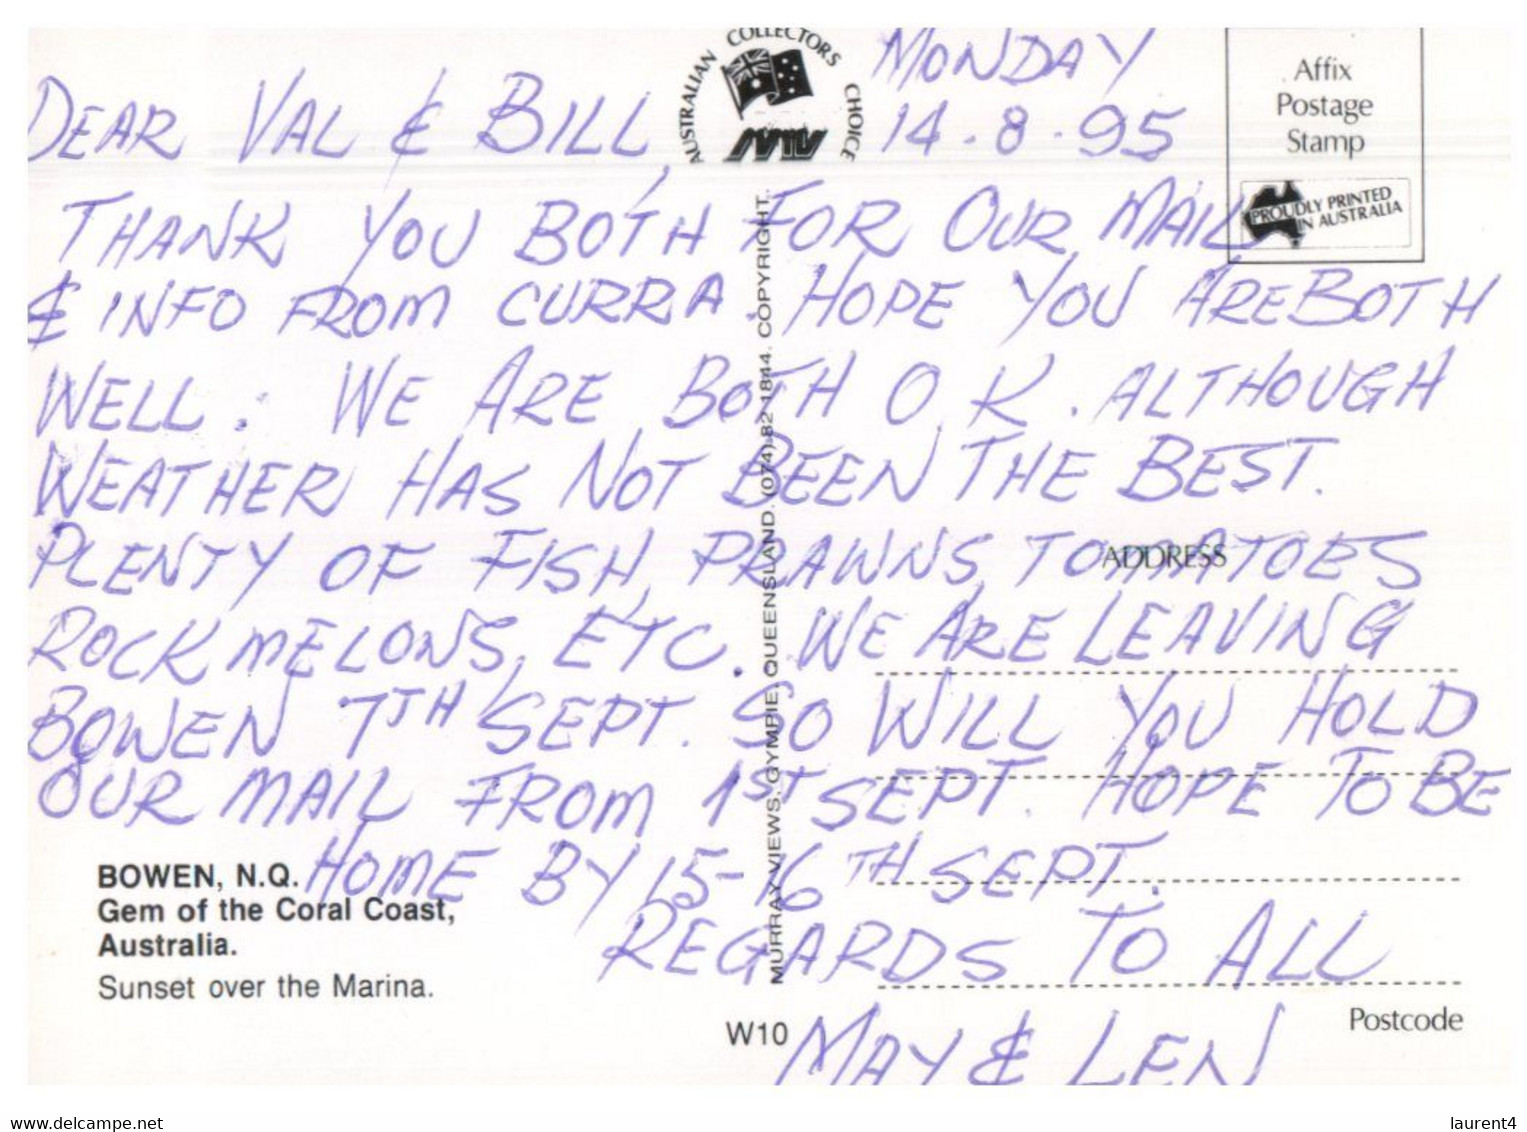 AUSTRALIAN COLLECTORS CHOICE
MONDAY
14.8.95
Affix
Postage
Stamp
PROUDLY PRINTED
IN AUSTRALIA
DEAR VAL & BILL,
THANK YOU BOTH FOR OUR MAIL
& INFO FROM CURRA. HOPE YOU ARE BOTH
WELL. WE ARE BOTH O.K. ALTHOUGH
WEATHER HAS NOT BEEN THE BEST.
PLENTY OF FISH, PRAWNS, TOMATOES
ROCKMELONS, ETC. WE ARE LEAVING
BOWEN 7TH SEPT. SO WILL YOU HOLD
OUR MAIL FROM 1ST SEPT. HOPE TO BE
HOME BY 15-16TH SEPT.
REGARDS TO ALL
MAY & LEN
ADDRESS
MURRAY VIEWS, GYMPIE, QUEENSLAND. (074) 82 1844. COPYRIGHT.
BOWEN, N.Q.
Gem of the Coral Coast,
Australia.
Sunset over the Marina.
W10
Postcode
www.delcampe.net
laurent4